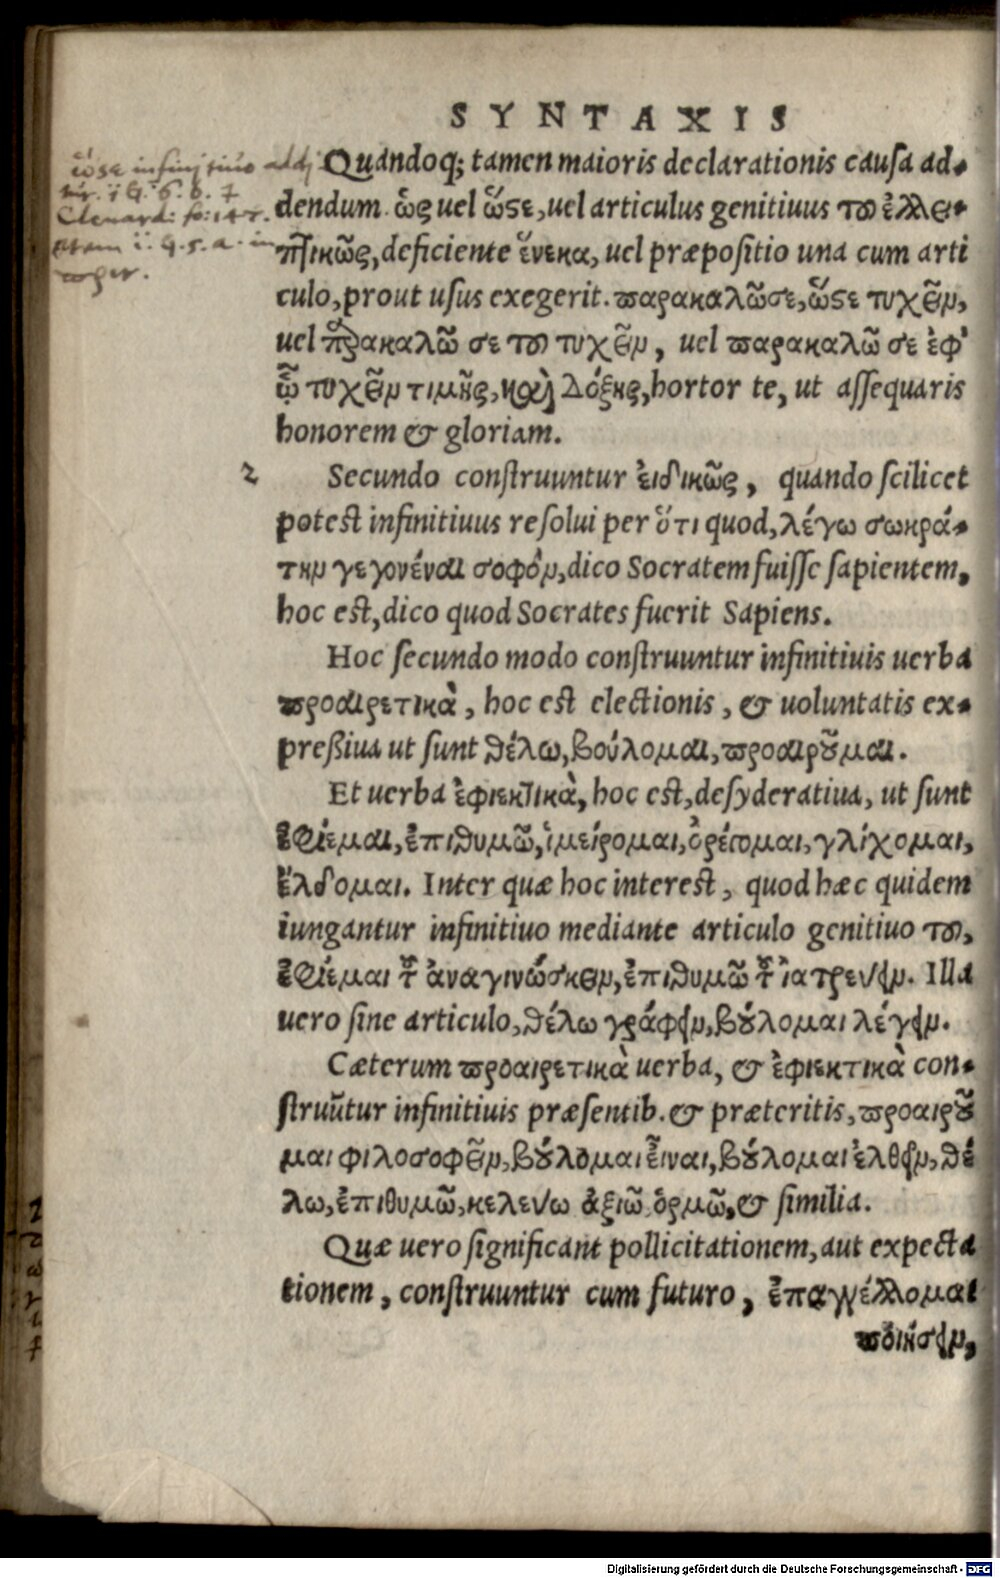 SYNTAXIS
Quandoq; tamen maioris declarationis causa ad-
dendum. ὡς uel ὥστε, uel articulus genitiuus τοῦ ἐλλει-
πτικῶς, deficiente ἕνεκα, uel præpositio una cum arti
culo, prout usus exegerit. παρακαλῶ σε, ὥστε τυχεῖν,
uel παρακαλῶ σε τοῦ τυχεῖν, uel παρακαλῶ σε ἐφ'
ᾧ τυχεῖν τιμῆς, καὶ δόξης, hortor te, ut assequaris
honorem & gloriam.
2 Secundo construuntur ἐιδικῶς, quando scilicet
potest infinitiuus resolui per ὅτι quod, λέγω σωκρά-
την γεγονέναι σοφὸν, dico Socratem fuisse sapientem,
hoc est, dico quod Socrates fuerit Sapiens.
Hoc secundo modo construuntur infinitiuis uerba
προαιρετικὰ, hoc est electionis, & uoluntatis ex-
preßiua ut sunt θέλω, βούλομαι, προαιροῦμαι.
Et uerba ἐφιεκτικὰ, hoc est, desyderatiua, ut sunt
ἐφίεμαι, ἐπιθυμῶ, ἱμείρομαι, ὀρέγομαι, γλίχομαι,
ἔλδομαι. Inter quæ hoc interest, quod hæc quidem
iungantur infinitiuo mediante articulo genitiuo τοῦ,
ἐφίεμαι τοῦ ἀναγινώσκειν, ἐπιθυμῶ τοῦ ἰατρεύειν. Illa
uero sine articulo, θέλω γράφειν, βούλομαι λέγειν.
Cæterum προαιρετικὰ uerba, & ἐφιεκτικὰ con-
struũtur infinitiuis præsentib. & præteritis, προαιροῦ
μαι φιλοσοφεῖν, βούλομαι εἶναι, βούλομαι ἐλθεῖν, θέ
λω, ἐπιθυμῶ, κελεύω ἀξιῶ, ὁρμῶ, & similia.
Quæ uero significant pollicitationem, aut expecta
tionem, construuntur cum futuro, ἐπαγγέλλομαι
ποιήσειν,
ὥστε infinitiuo addi
Clenard: fo: 147.
etam
Digitalisierung gefördert durch die Deutsche Forschungsgemeinschaft - DFG